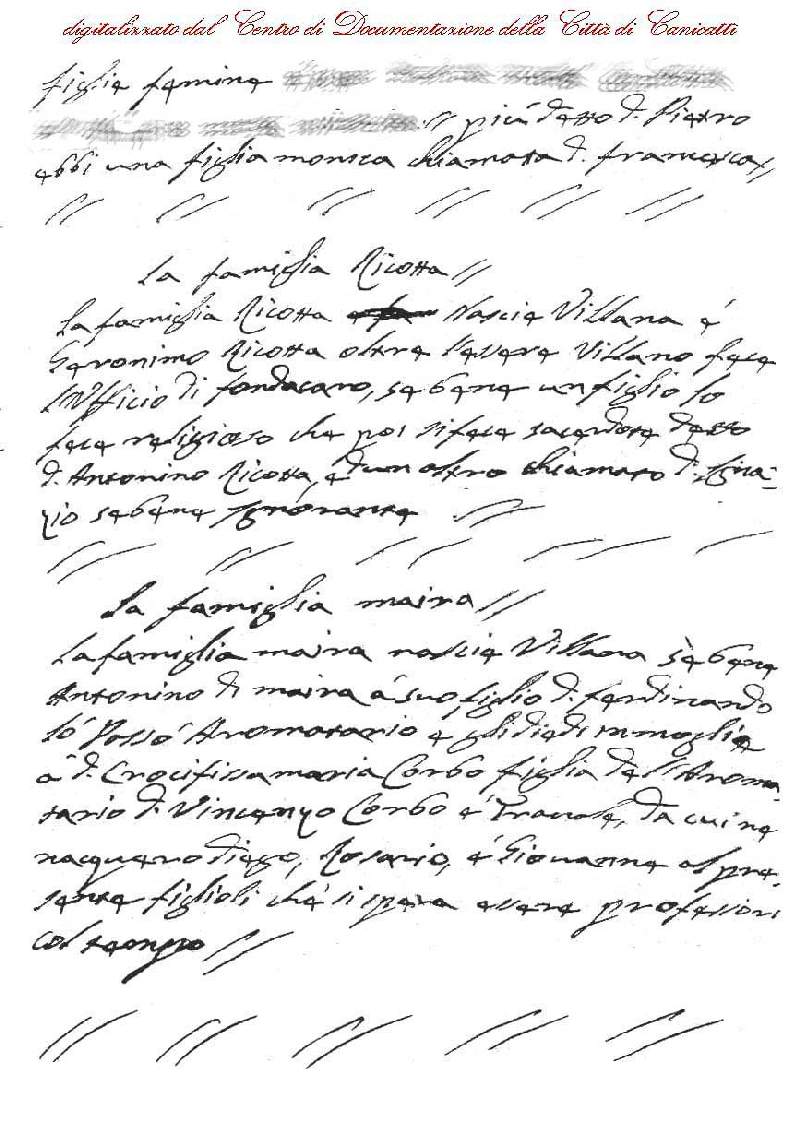 digitalizzato dal Centro di Documentazione della Città di Canicattì
figlie femine
più detto d. Pietro
ebbi una figlia monica chiamata d. francesca //
La famiglia Ricotta //
La famiglia Ricotta Nascie Villana é
Geronimo Ricotta oltre l'essere Villano fece
l'Ufficio di fondacaro, se bene un figlio lo
fece religioso che poi si fece sacerdote detto
d. Antonino Ricotta, e d'un altro chiamato d. Igna-
zio se bene Ignorante //
La famiglia maira //
La famiglia maira nascie Villana se bene
Antonino di maira à suo figlio d. ferdinando
lo Aromatario e gli diedi in moglie
à d. Crocifissa maria Corbo figlia dell'Aroma-
tario d. Vincenzo Corbo é da cui ne
nacquero diego, Rosario, é Giovanne al pre-
sente figlioli che si spera essere professori
col tempo //